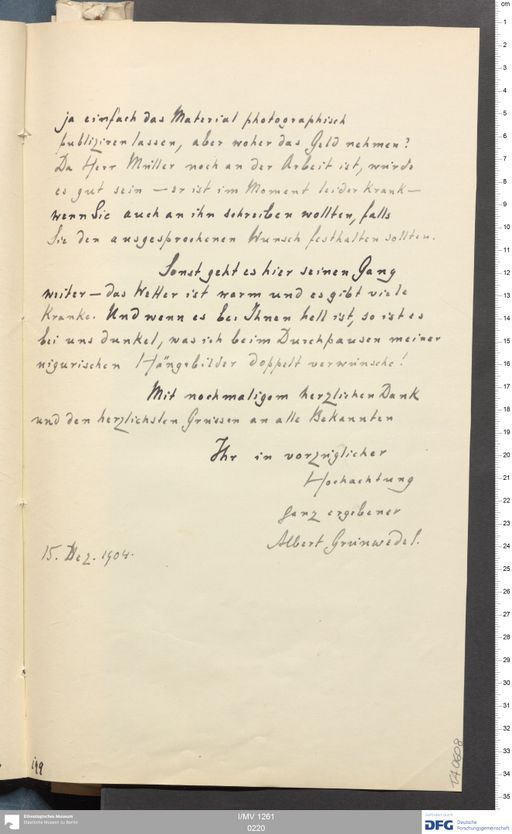 ja einfach das Material photographisch
publiziren lassen, aber woher das Geld nehmen?
Da Herr Müller noch an der Arbeit ist, würde
es gut sein — er ist im Moment leider krank —
wenn Sie auch an ihn schreiben wollten, falls
Sie den ausgesprochenen Wunsch festhalten sollten.
Sonst geht es hier seinen Gang
weiter — das Wetter ist warm und es gibt viele
Kranke. Und wenn es bei Ihnen hell ist, so ist es
bei uns dunkel, was ich beim Durchpausen meiner
uigurischen Hängebilder doppelt verwünsche!
Mit nochmaligem herzlichen Dank
und den herzlichsten Grüssen an alle Bekannten
Ihr in vorzüglicher
Hochachtung
ganz ergebener
Albert Grünwedel.
15. Dez. 1904.
149
TA 0608
Ethnologisches Museum
Staatliche Museen zu Berlin
I/MV 1261
0220
DFG Deutsche
Forschungsgemeinschaft
cm
1
2
3
4
5
6
7
8
9
10
11
12
13
14
15
16
17
18
19
20
21
22
23
24
25
26
27
28
29
30
31
32
33
34
35